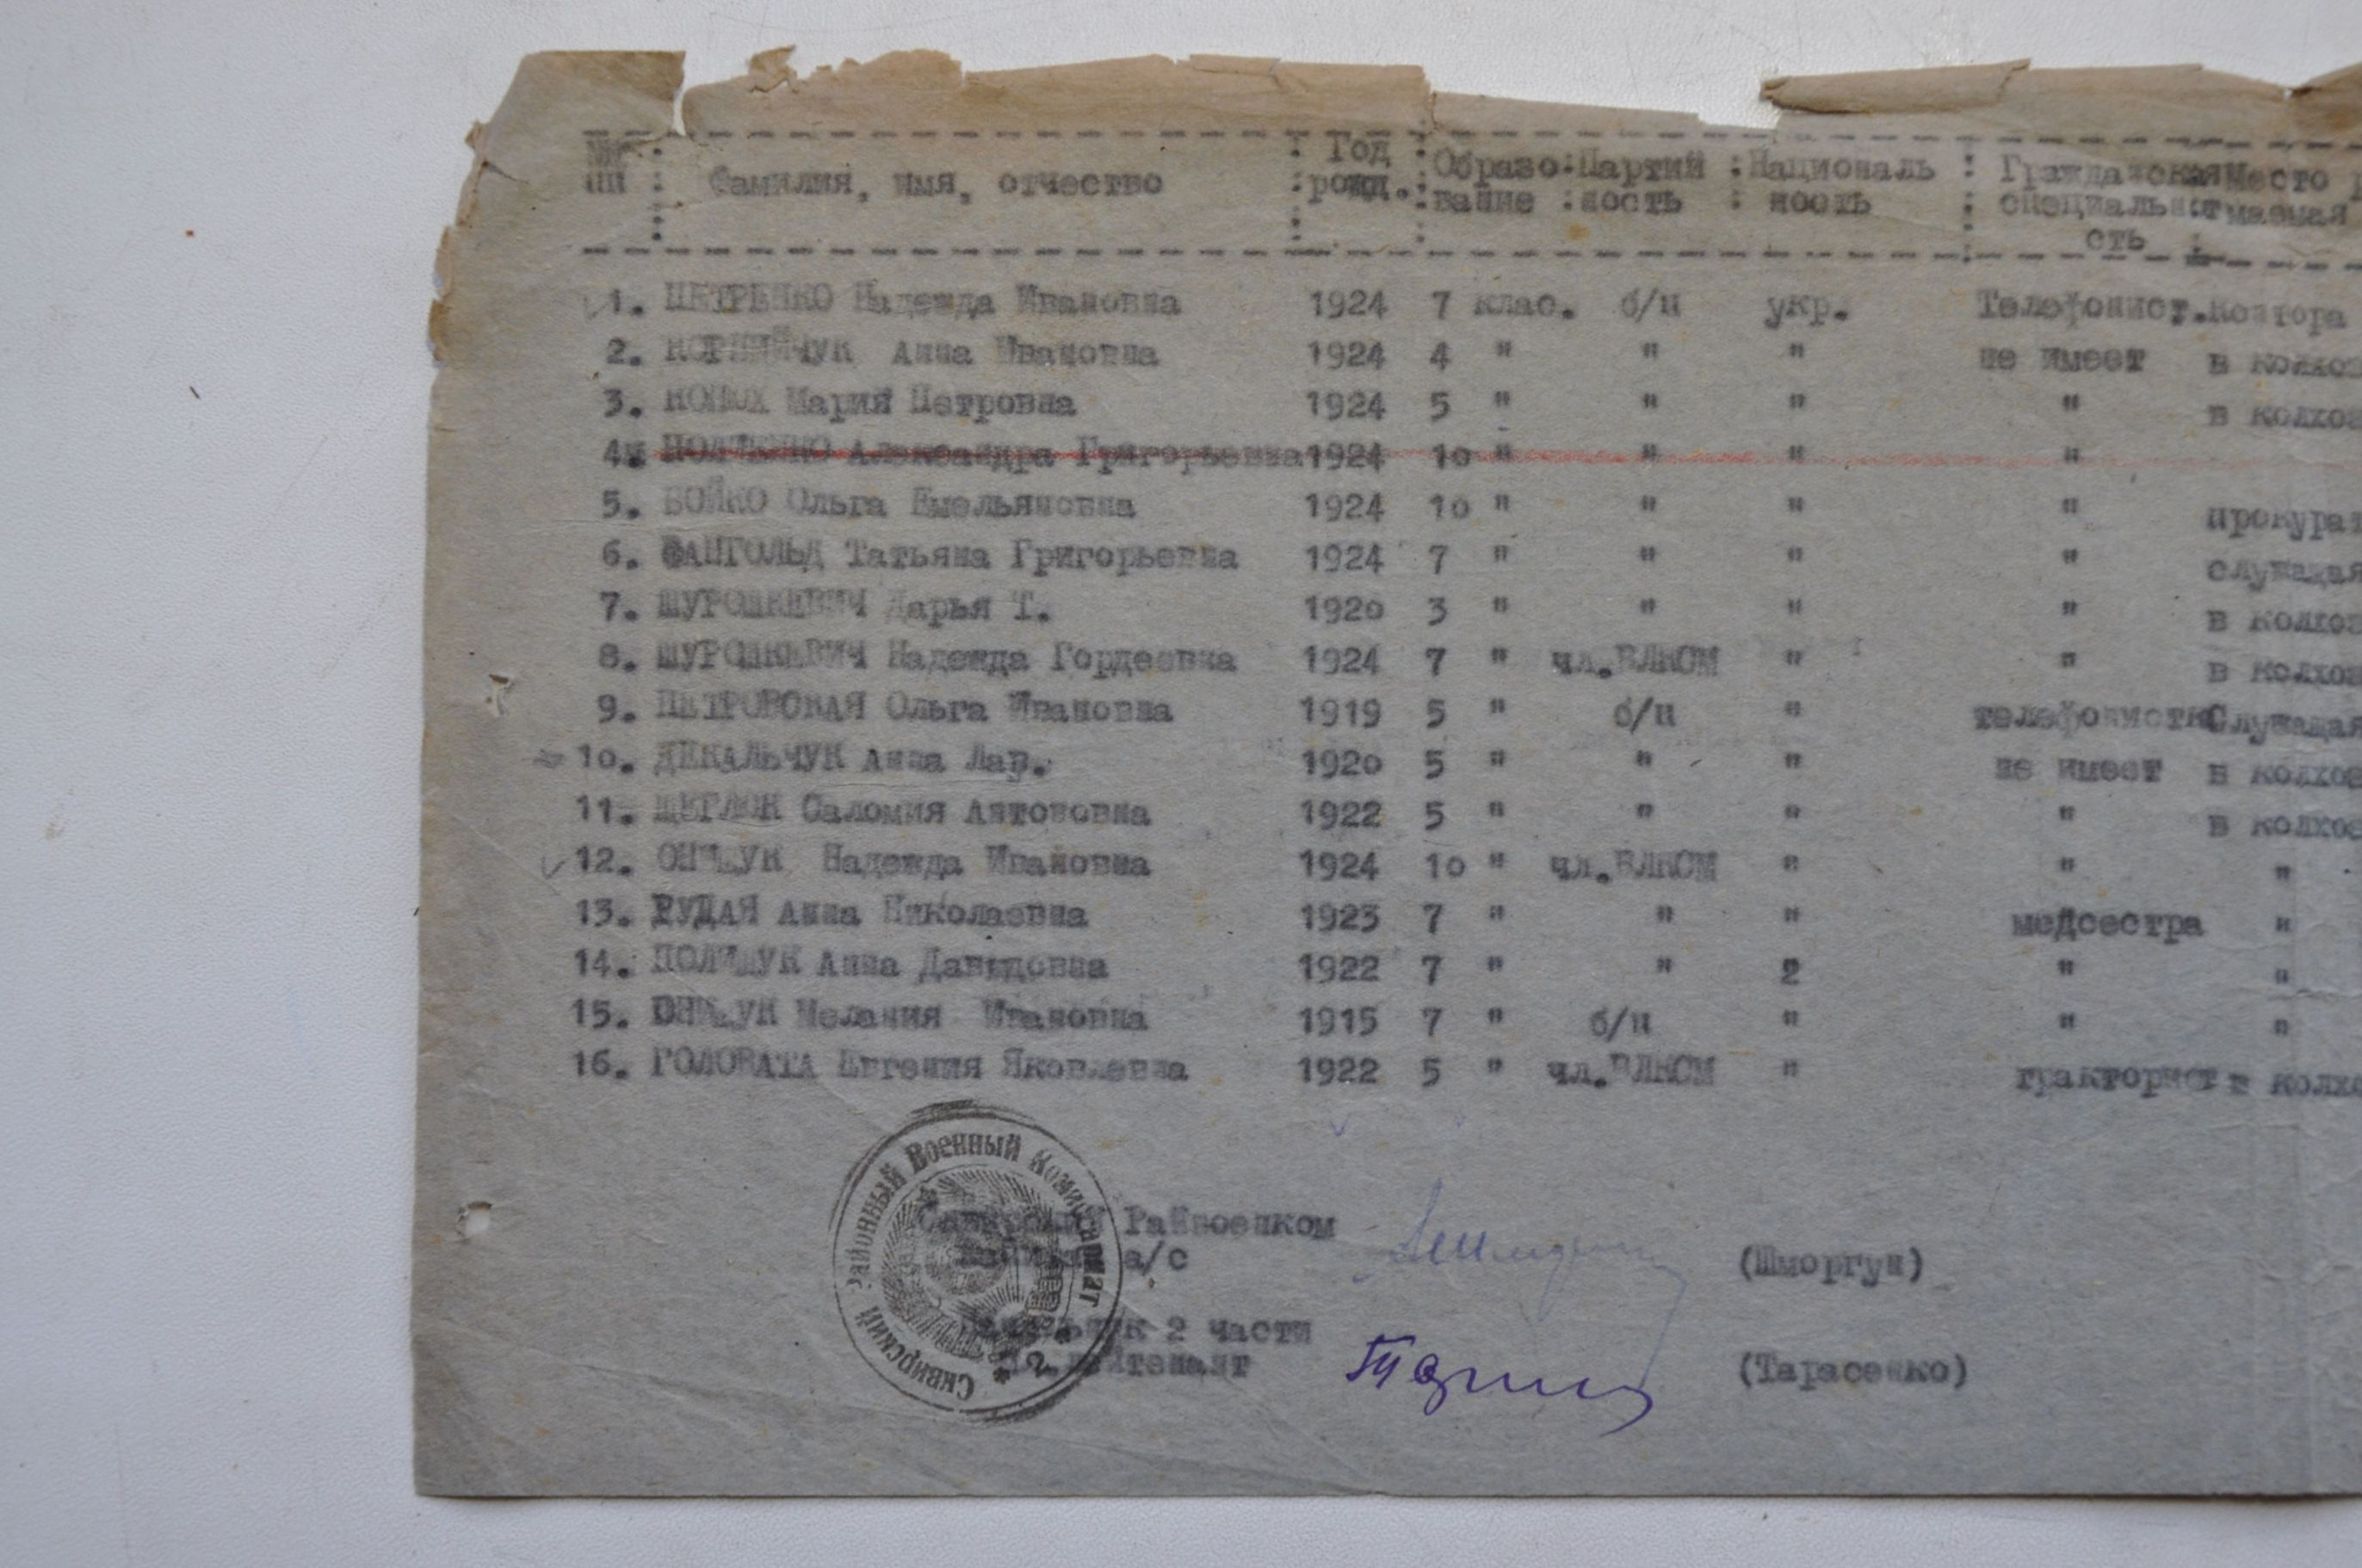 №№ пп : Фамилия, имя, отчество : Год рожд. : Образо вание : Партий ность : Националь ность : Гражданская специальност сть Место р маемая
1. ПЕТРЕНКО Надежда Ивановна 1924 7 клас. б/п укр. Телефонист. Контора
2. КОРНИЙЧУК Анна Ивановна 1924 4 " " " не имеет в колхоз
3. КОНЮХ Мария Петровна 1924 5 " " " " в колхоз
4. Александра Григорьевна 1924 10 " " " "
5. БОЙКО Ольга Емельяновна 1924 10 " " " " прокурат
6. ФАНГОЛЬД Татьяна Григорьевна 1924 7 " " " " служащая
7. ШУРОШКЕВИЧ Дарья Т. 1920 3 " " " " в колхоз
8. ШУРОШКЕВИЧ Надежда Гордеевна 1924 7 " чл.ВЛКСМ " " в колхоз
9. ПЕТРОВСКАЯ Ольга Ивановна 1919 5 " б/п " телефонистка Служащая
10. ДЕКАЛЬЧУК Анна Лав. 1920 5 " " " не имеет в колхоз
11. ЩЕГЛЮК Саломия Антоновна 1922 5 " " " " в колхоз
12. ОНИЩУК Надежда Ивановна 1924 10 " чл.ВЛКСМ " " "
13. РУДАЯ Анна Николаевна 1923 7 " " " медсестра "
14. ПОЛИЩУК Анна Давыдовна 1922 7 " " 2 " "
15. ОНИЩУК Мелания Ивановна 1915 7 " б/п " " "
16. ГОЛОВАТА Евгения Яковлевна 1922 5 " чл.ВЛКСМ " тракторист в колхо
Сквирский Районный Военный Комиссариат * 2 *
Сквирский Райвоенком
а/с (Шморгун)
Начальник 2 части
лейтенант (Тарасенко)